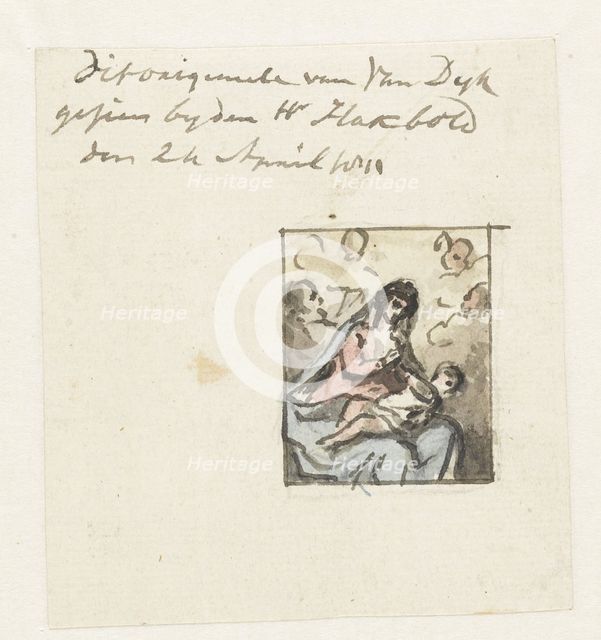 Dit origineele van Van Dyk
gesien by den Hr Hakbold
den 24 April
Heritage Heritage
Heritage Heritage
Heritage Heritage